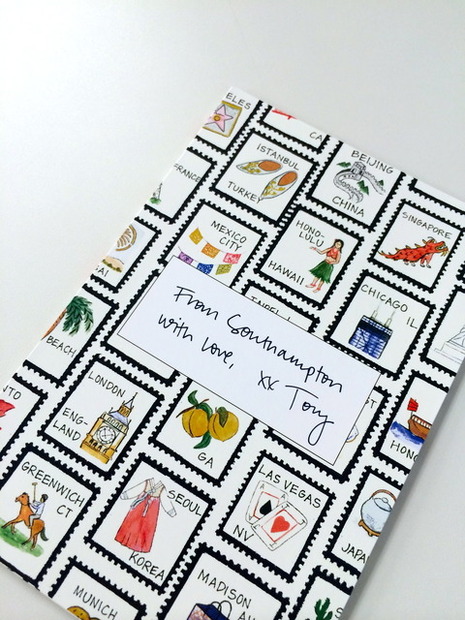 ELES
CA
ISTANBUL
TURKEY
BEIJING
CHINA
FRANCE
MEXICO
CITY
HONO-
LULU
HAWAII
SINGAPORE
CHICAGO IL
BEACH
From Southampton
with love,
xx Tory
LONDON
ENG-
LAND
GA
NTO
GREENWICH
CT
SEOUL
KOREA
LAS VEGAS
NV
HONG
JAPA
MUNICH
MADISON